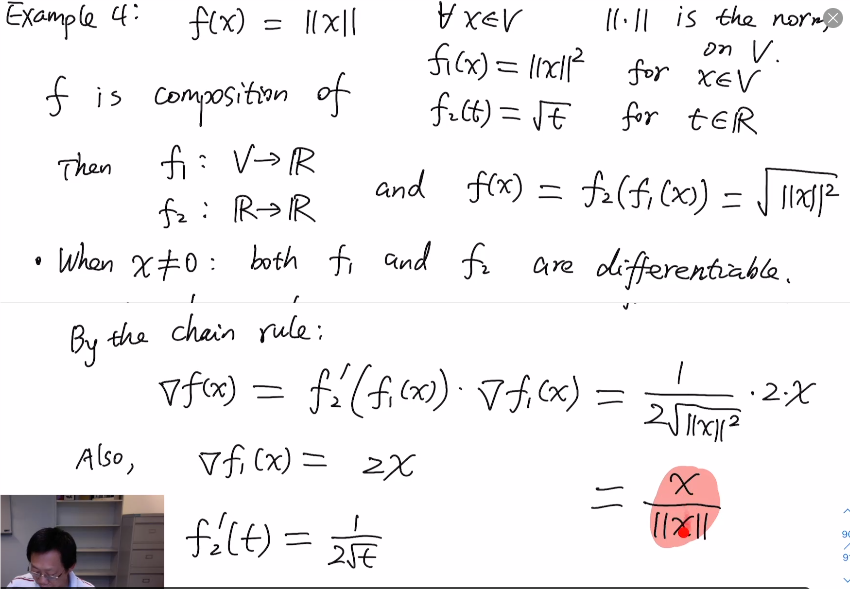 Example 4: f(x) = ||x|| ∀ x∈V ||·|| is the norm, on V.
f is composition of f₁(x) = ||x||² for x∈V
f₂(t) = √t for t∈ℝ
Then f₁ : V→ℝ
f₂ : ℝ→ℝ
and f(x) = f₂(f₁(x)) = √||x||²
• When x≠0: both f₁ and f₂ are differentiable.
By the chain rule:
∇f(x) = f₂′(f₁(x)) · ∇f₁(x) = 1/(2√||x||²) · 2·x
Also, ∇f₁(x) = 2x
= x/||x||
f₂′(t) = 1/(2√t)